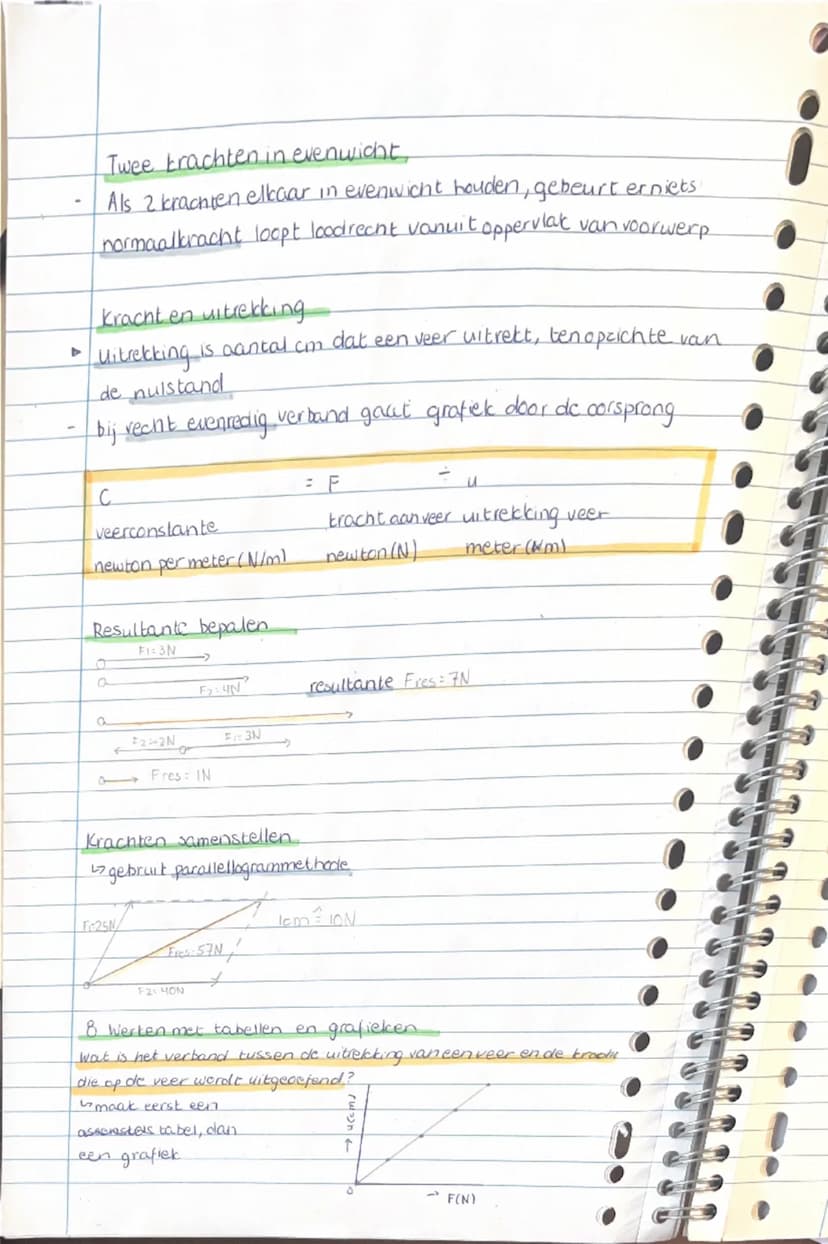 Twee krachten in evenwicht
- Als 2 krachten elkaar in evenwicht houden, gebeurt er niets
normaalkracht loopt loodrecht vanuit oppervlak van voorwerp
Kracht en uitrekking
▷ uitrekking is aantal cm dat een veer uitrekt, ten opzichte van
de nulstand
- bij recht evenredig verband gaat grafiek door de oorsprong
C = F ÷ u
veerconstante kracht aan veer uitrekking veer
newton per meter (N/m) newton (N) meter (m)
Resultante bepalen
F1=3N
F2=4N resultante Fres=7N
F2=-2N F1=3N
Fres=1N
Krachten samenstellen
↳ gebruik parallellogrammethode
F1=25N 1cm ≙ 10N
Fres=57N
F2=40N
8 Werken met tabellen en grafieken
Wat is het verband tussen de uitrekking van een veer en de kracht
die op de veer wordt uitgeoefend?
↳ maak eerst een
tabel, dan
een grafiek
→ u(cm)
0 → F(N)